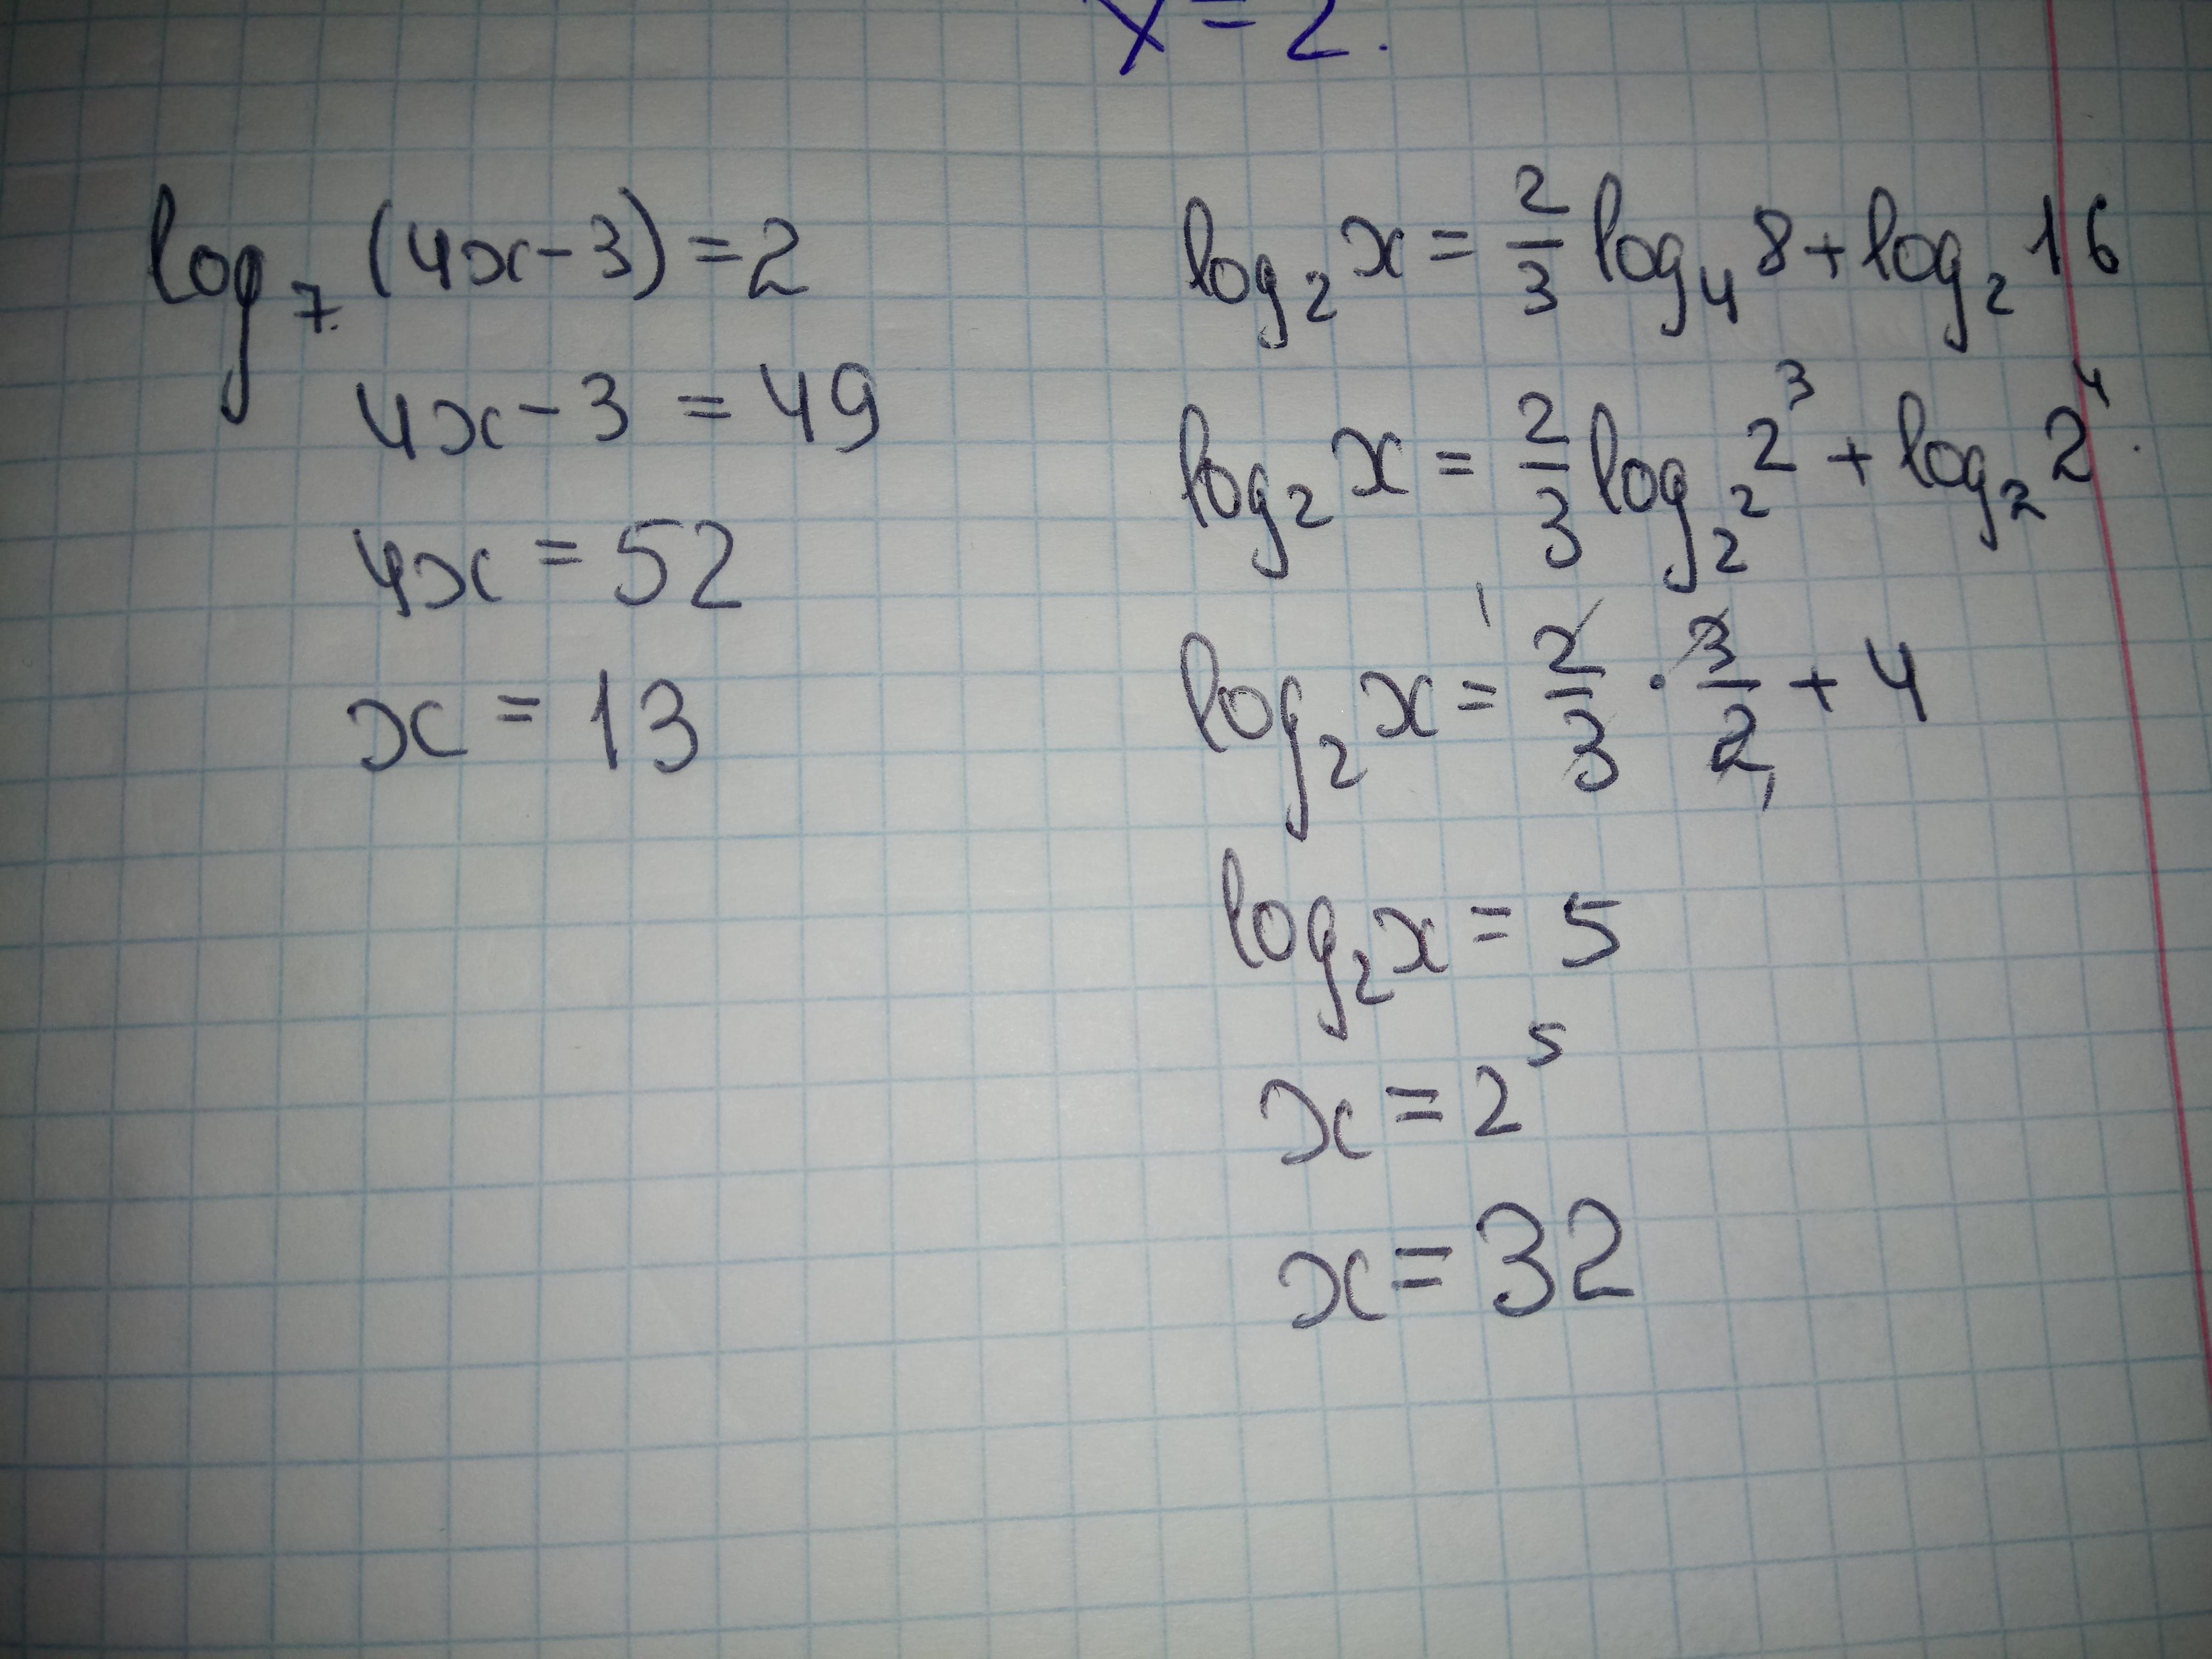 x = 2.
log₇ (4x - 3) = 2
4x - 3 = 49
4x = 52
x = 13
log₂ x = 2/3 log₄ 8 + log₂ 16
log₂ x = 2/3 log_{2²} 2³ + log₂ 2⁴
log₂ x = 2/3 · 3/2 + 4
log₂ x = 5
x = 2⁵
x = 32